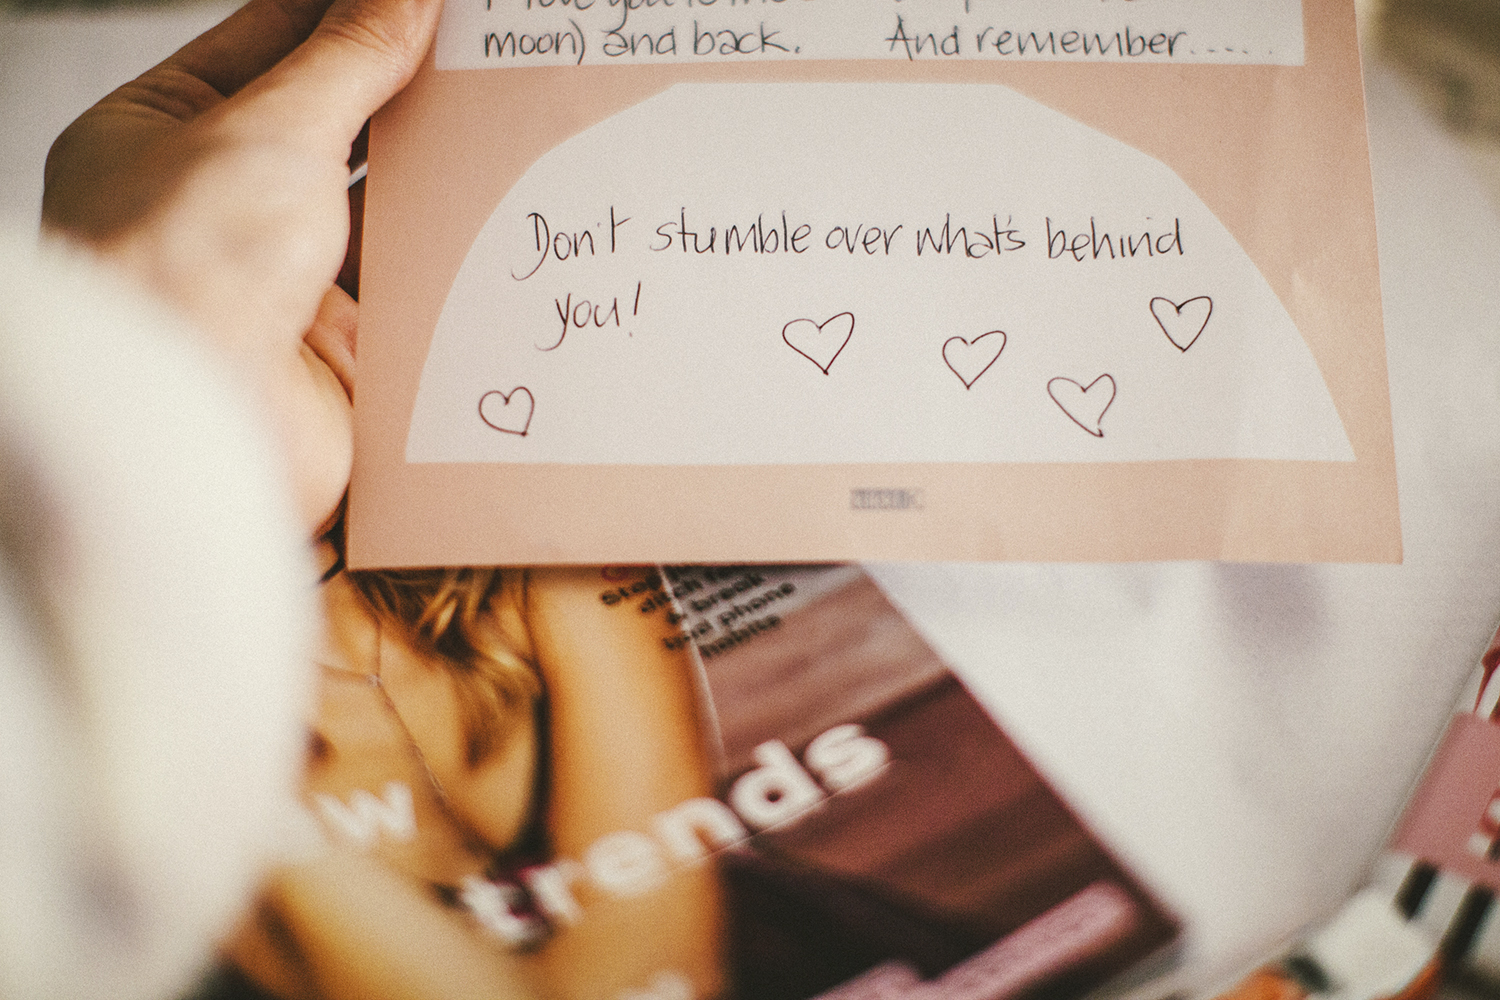 I love you to the
moon) and back. And remember.....
Don't stumble over what's behind
you!
& break
bad phone
habits
w
trends